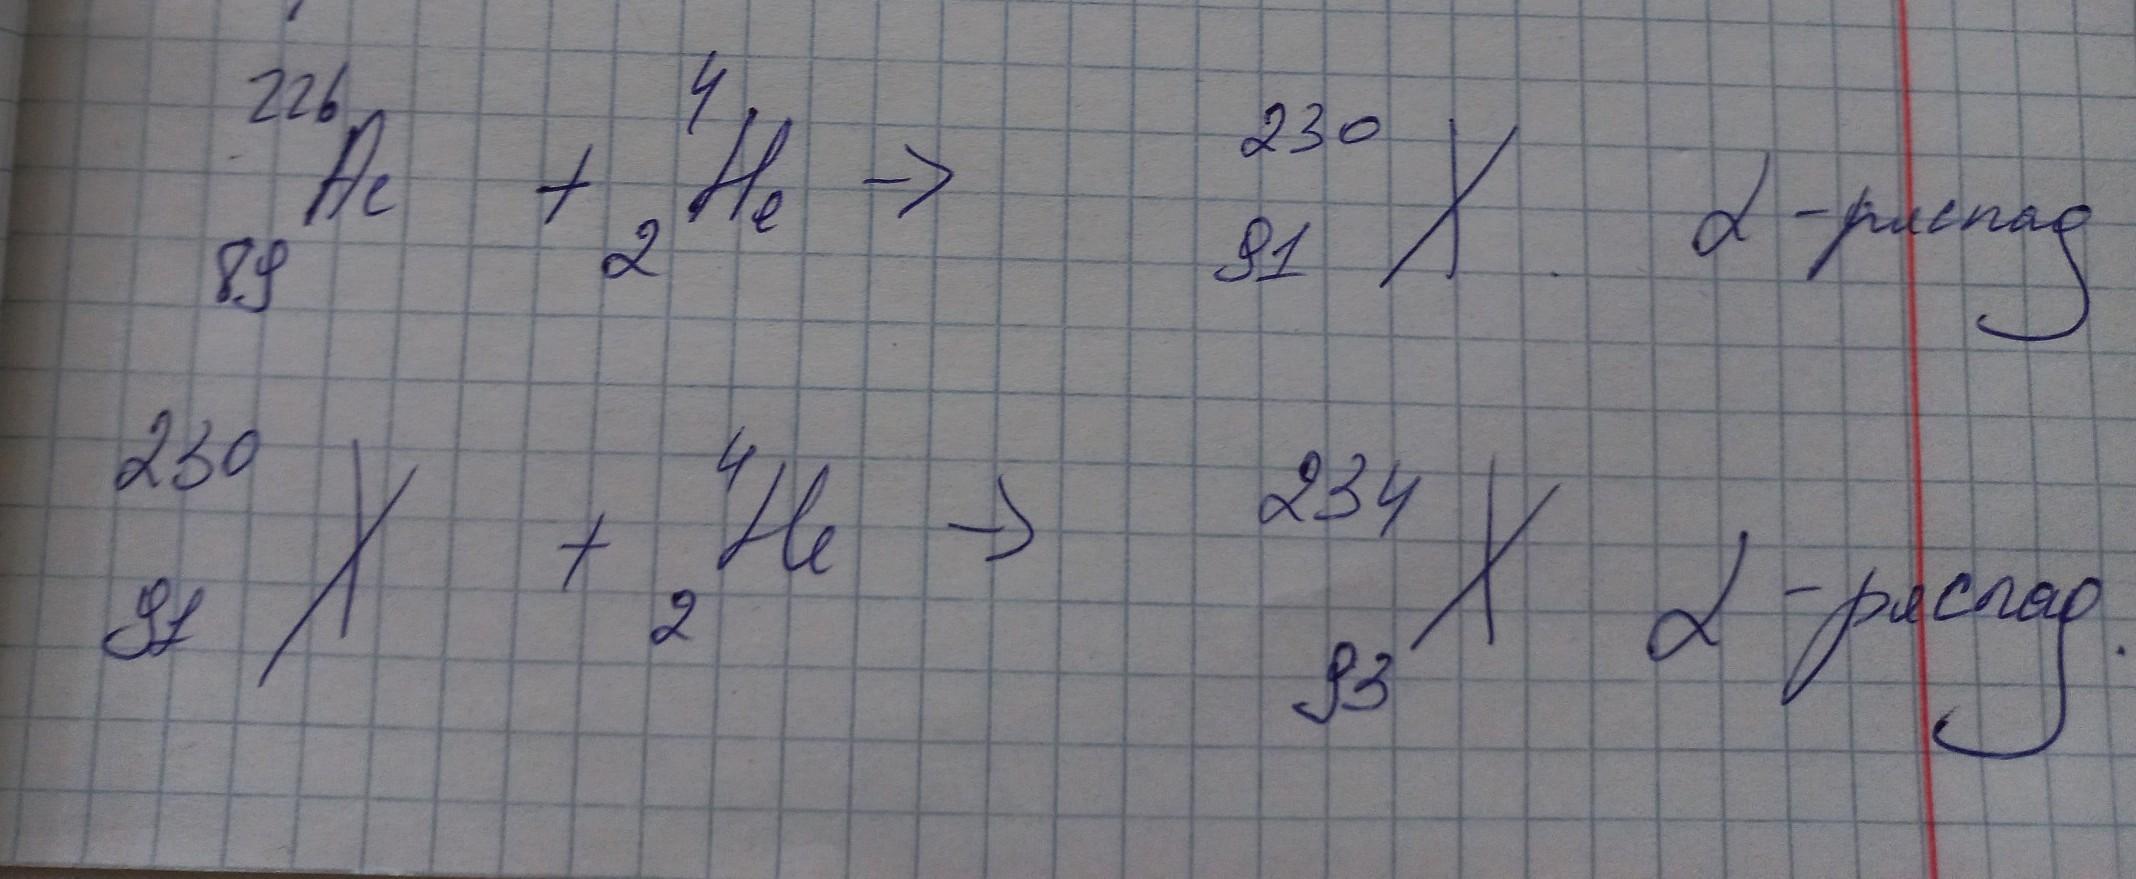 ²²⁶₈₉Ac + ⁴₂He → ²³⁰₉₁X α - распад
²³⁰₉₁X + ⁴₂He → ²³⁴₉₃X α - распад.